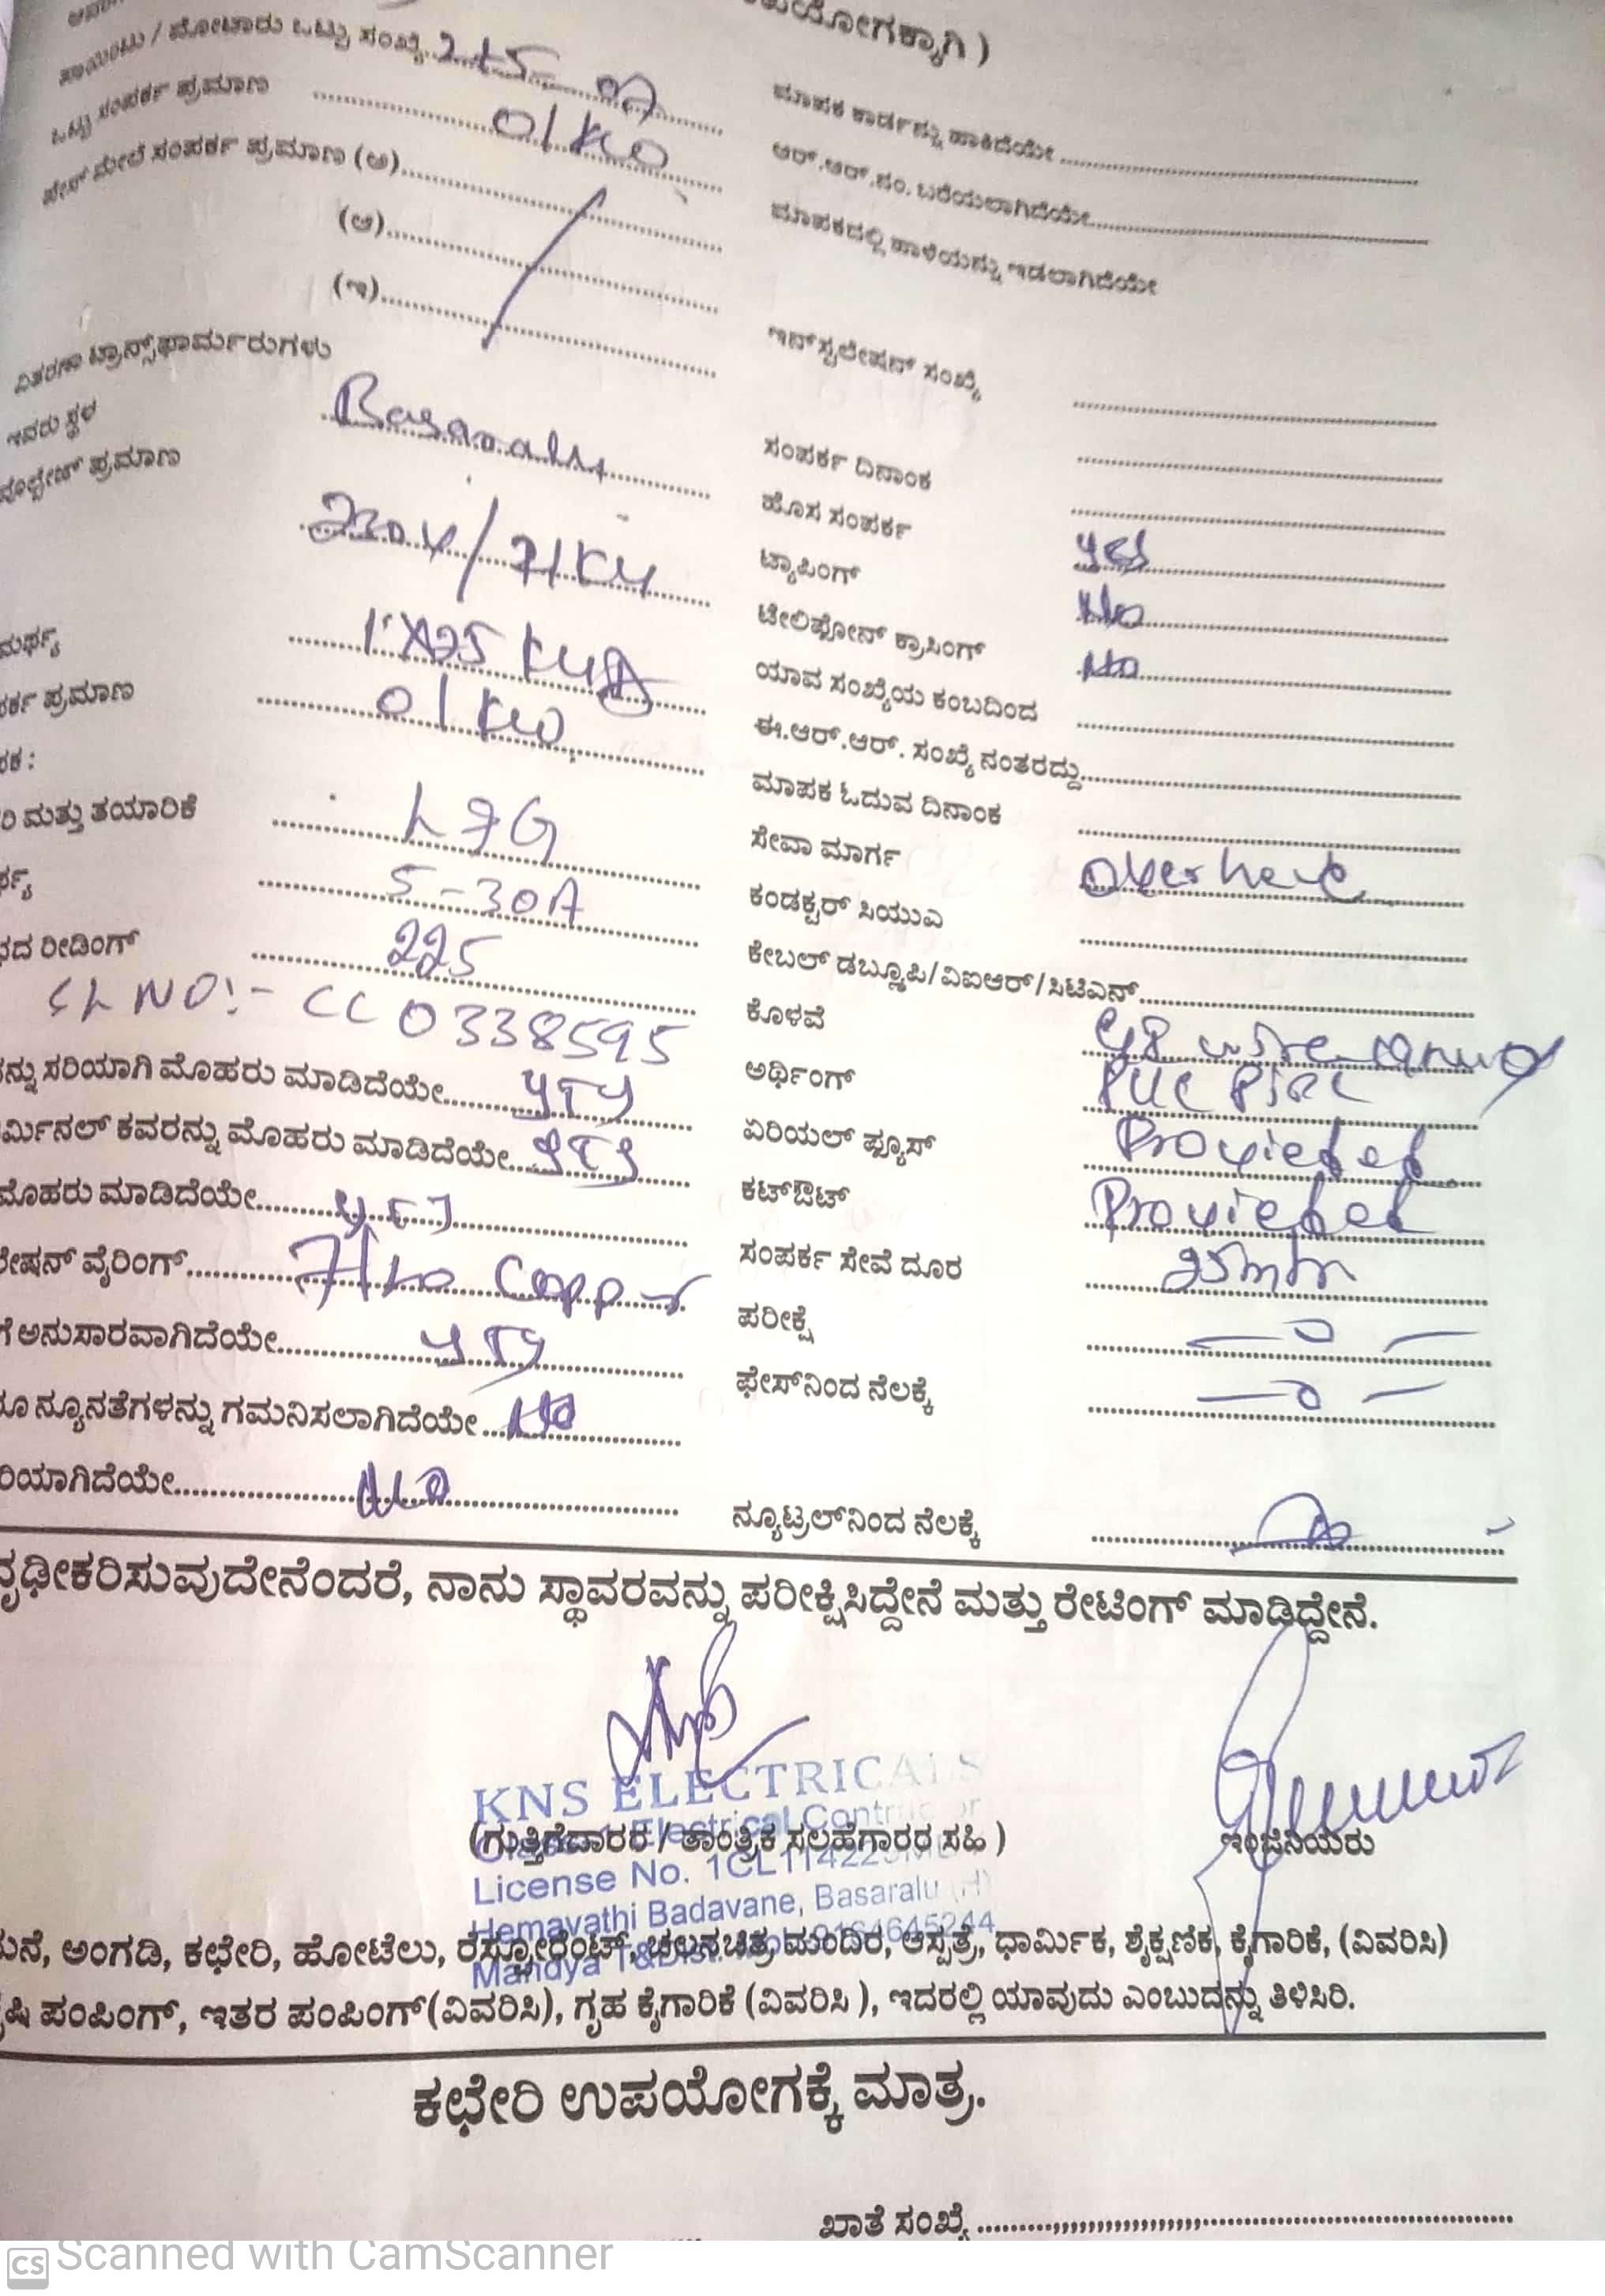 ಉಪಯೋಗಕ್ಕಾಗಿ )
ಪಾಯಿಂಟು / ಮೋಟಾರು ಒಟ್ಟು ಸಂಖ್ಯೆ
ಒಟ್ಟು ಸಂಪರ್ಕ ಪ್ರಮಾಣ 01 KW
ಫೇಸ್ ಮೇಲೆ ಸಂಪರ್ಕ ಪ್ರಮಾಣ (ಅ)
(ಆ)
(ಇ)
ವಿತರಣಾ ಟ್ರಾನ್ಸ್‌ಫಾರ್ಮರುಗಳು
ಇವರು ಸ್ಥಳ Basaralu
ವೋಲ್ಟೇಜ್ ಪ್ರಮಾಣ 230V/
ಮರ್ಥ್ಯ 1X25 KVA
ರ್ಕ ಪ್ರಮಾಣ 01 KW
ಪಕ :
ರಿ ಮತ್ತು ತಯಾರಿಕೆ L&G
ರ್ಥ್ಯ 5-30A
ದ ರೀಡಿಂಗ್ 225
SL NO:- CC 0338595
ನ್ನು ಸರಿಯಾಗಿ ಮೊಹರು ಮಾಡಿದೆಯೇ yes
ರ್ಮಿನಲ್ ಕವರನ್ನು ಮೊಹರು ಮಾಡಿದೆಯೇ yes
ಮೊಹರು ಮಾಡಿದೆಯೇ yes
ಲೇಷನ್ ವೈರಿಂಗ್ Copper
ಗೆ ಅನುಸಾರವಾಗಿದೆಯೇ yes
ನ್ಯೂನತೆಗಳನ್ನು ಗಮನಿಸಲಾಗಿದೆಯೇ No
ರಿಯಾಗಿದೆಯೇ No
ಮಾಪಕ ಕಾರ್ಡನ್ನು ಹಾಕಿದೆಯೇ
ಆರ್.ಆರ್.ನಂ. ಬರೆಯಲಾಗಿದೆಯೇ
ಮಾಪಕದಲ್ಲಿ ಹಾಳೆಯನ್ನು ಇಡಲಾಗಿದೆಯೇ
ಇನ್‌ಸ್ಟಲೇಷನ್ ಸಂಖ್ಯೆ
ಸಂಪರ್ಕ ದಿನಾಂಕ
ಹೊಸ ಸಂಪರ್ಕ yes
ಟ್ಯಾಪಿಂಗ್ No
ಟೇಲಿಫೋನ್ ಕ್ರಾಸಿಂಗ್ No
ಯಾವ ಸಂಖ್ಯೆಯ ಕಂಬದಿಂದ
ಈ.ಆರ್.ಆರ್. ಸಂಖ್ಯೆ ನಂತರದ್ದು
ಮಾಪಕ ಓದುವ ದಿನಾಂಕ
ಸೇವಾ ಮಾರ್ಗ
ಕಂಡಕ್ಟರ್ ಸಿಯುಎ
ಕೇಬಲ್ ಡಬ್ಲ್ಯೂಪಿ/ವಿಐಆರ್/ಸಿಟಿಎನ್
ಕೊಳವೆ
ಅರ್ಥಿಂಗ್
ಏರಿಯಲ್ ಫ್ಯೂಸ್ Provieded
ಕಟ್‌ಔಟ್ Provieded
ಸಂಪರ್ಕ ಸೇವೆ ದೂರ
ಪರೀಕ್ಷೆ — 0 —
ಫೇಸ್‌ನಿಂದ ನೆಲಕ್ಕೆ — 0 —
ನ್ಯೂಟ್ರಲ್‌ನಿಂದ ನೆಲಕ್ಕೆ
ದೃಢೀಕರಿಸುವುದೇನೆಂದರೆ, ನಾನು ಸ್ಥಾವರವನ್ನು ಪರೀಕ್ಷಿಸಿದ್ದೇನೆ ಮತ್ತು ರೇಟಿಂಗ್ ಮಾಡಿದ್ದೇನೆ.
KNS ELECTRICALS
Electrical Contractor
(ಗುತ್ತಿಗೆದಾರರ / ತಾಂತ್ರಿಕ ಸಲಹೆಗಾರರ ಸಹಿ ) ಇಂಜಿನಿಯರು
License No.
Hemavathi Badavane, Basaralu (H)
Mandya T&Dist.
ಮನೆ, ಅಂಗಡಿ, ಕಛೇರಿ, ಹೋಟೆಲು, ರೆಸ್ಟೋರೆಂಟ್, ಚಲನಚಿತ್ರ ಮಂದಿರ, ಆಸ್ಪತ್ರೆ, ಧಾರ್ಮಿಕ, ಶೈಕ್ಷಣಿಕ, ಕೈಗಾರಿಕೆ, (ವಿವರಿಸಿ)
ಷಿ ಪಂಪಿಂಗ್, ಇತರ ಪಂಪಿಂಗ್(ವಿವರಿಸಿ), ಗೃಹ ಕೈಗಾರಿಕೆ (ವಿವರಿಸಿ ), ಇದರಲ್ಲಿ ಯಾವುದು ಎಂಬುದನ್ನು ತಿಳಿಸಿರಿ.
ಕಛೇರಿ ಉಪಯೋಗಕ್ಕೆ ಮಾತ್ರ.
ಖಾತೆ ಸಂಖ್ಯೆ
CS Scanned with CamScanner